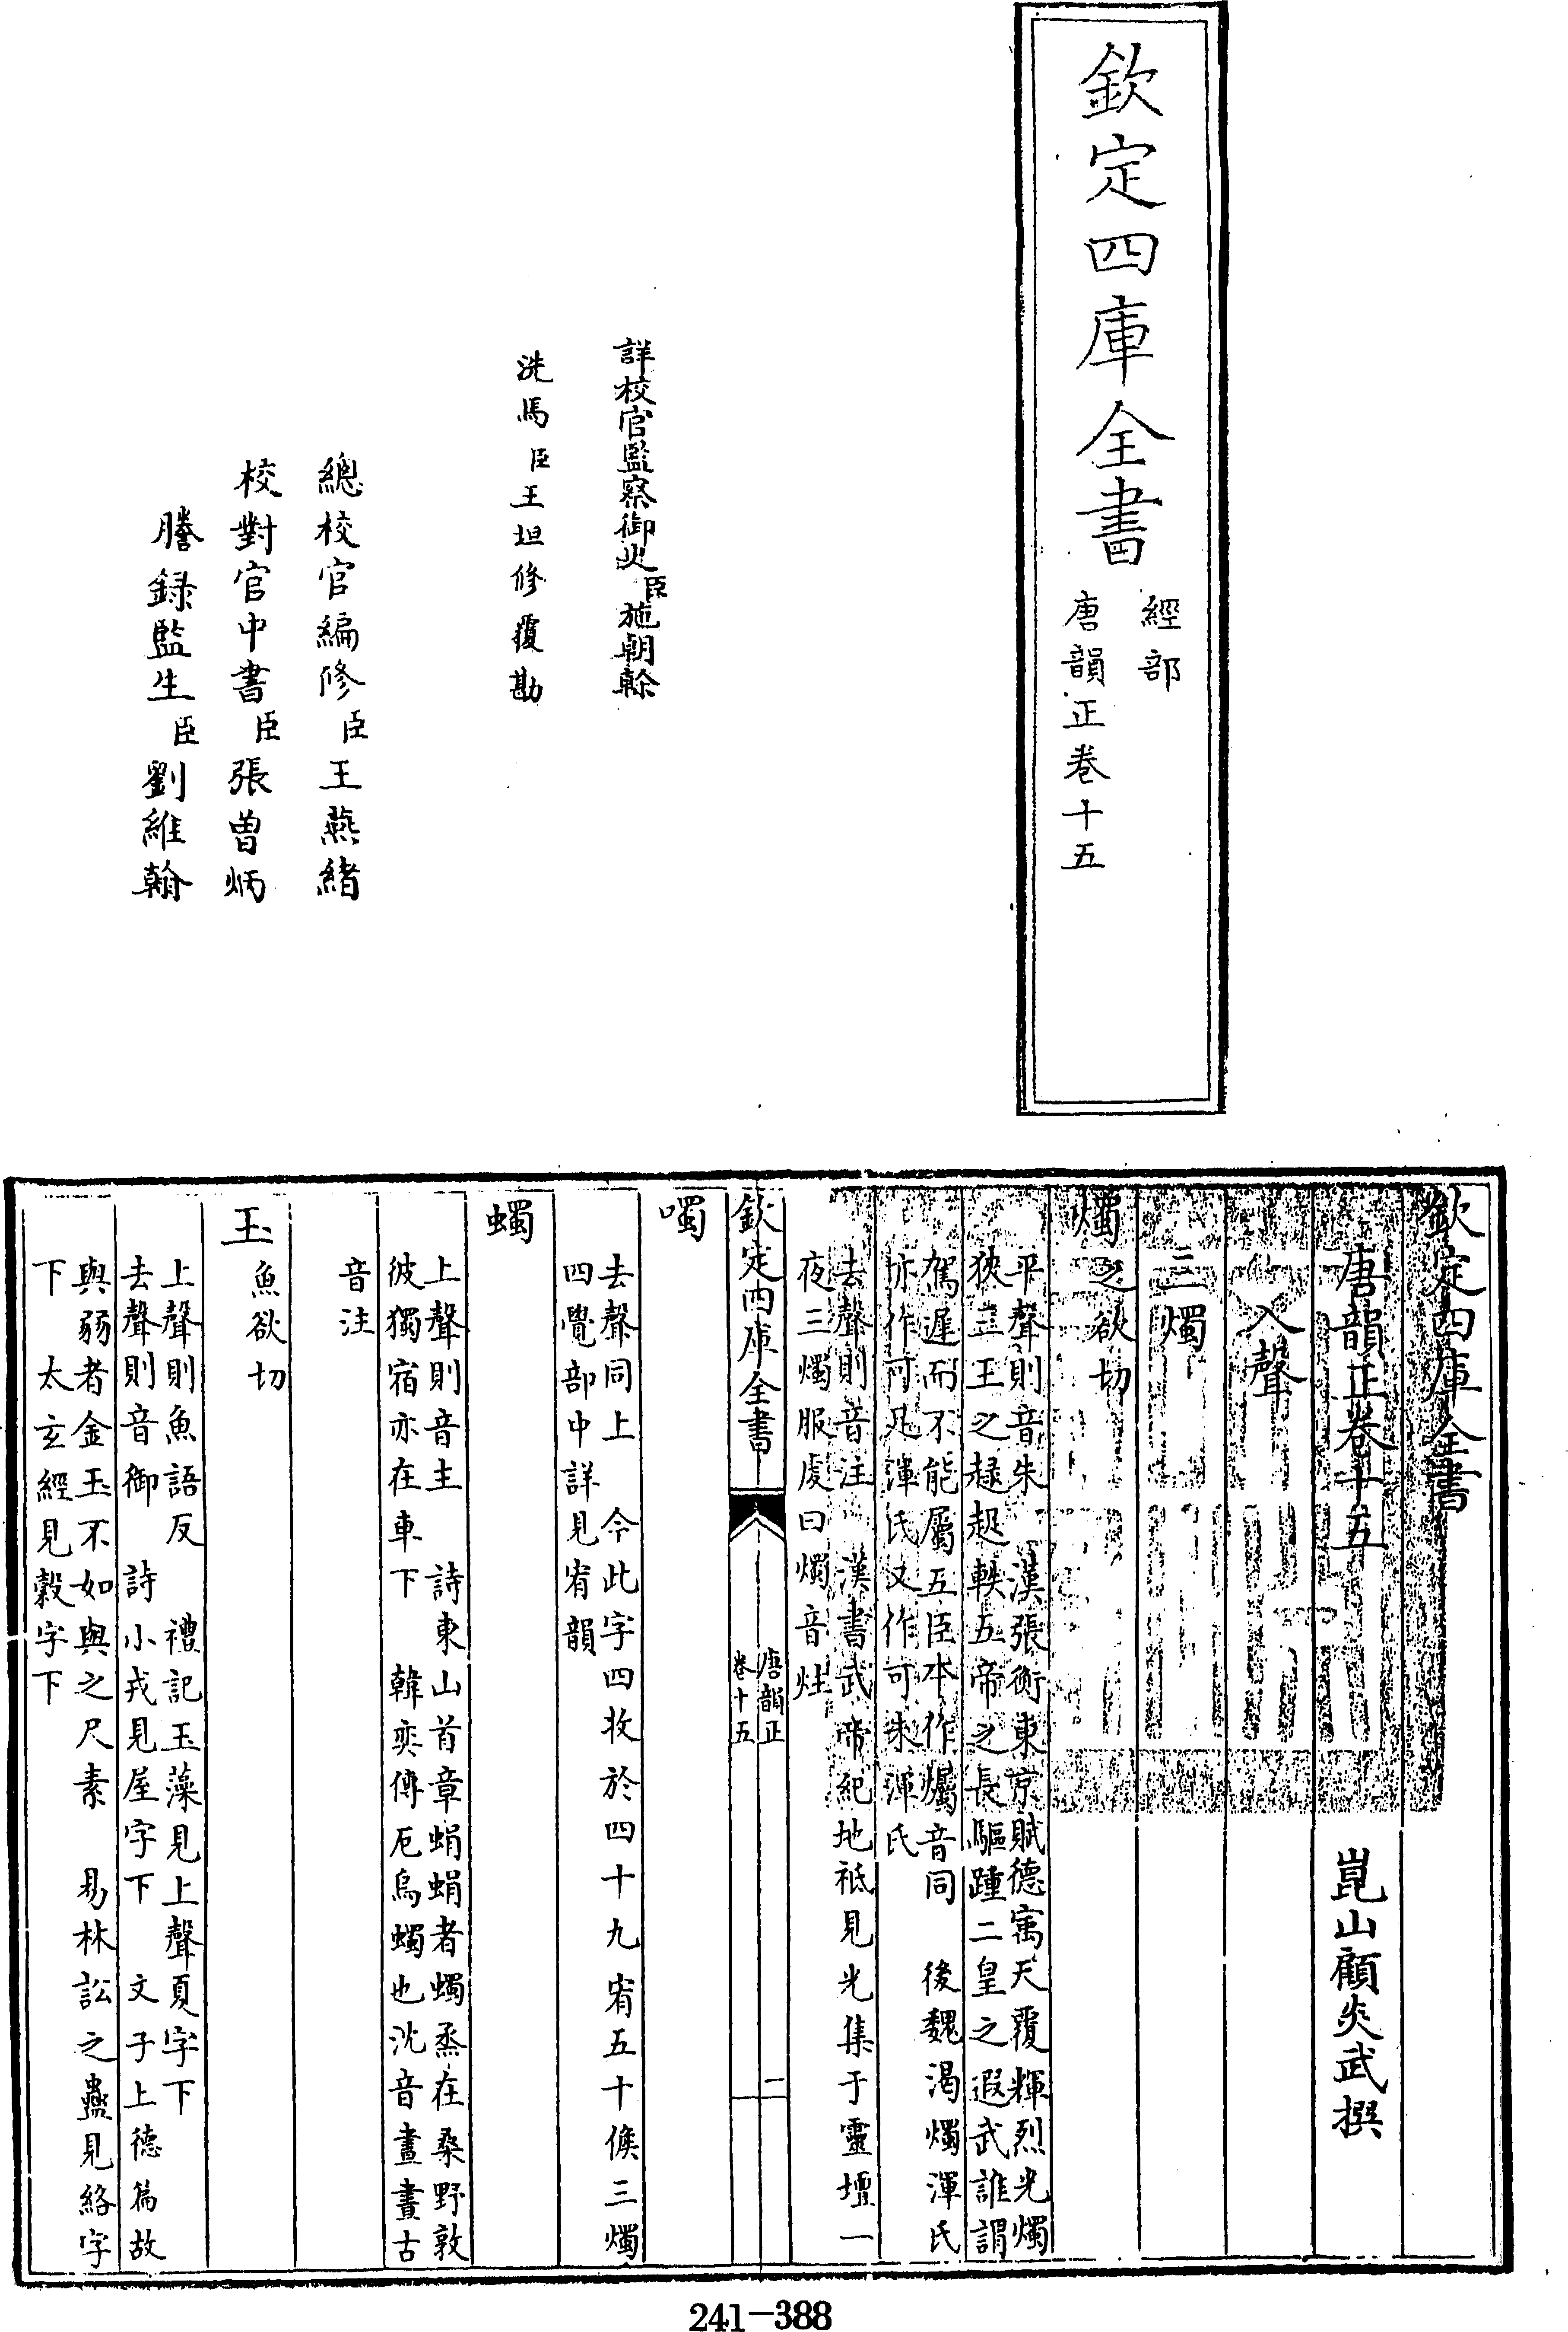 欽定四庫全書
經部
唐韻正卷十五
詳校官監察御史臣施朝榦
洗馬臣王坦修覆勘
總校官編修臣王燕緒
校對官中書臣張曾炳
謄録監生臣劉維翰
欽定四庫全書
唐韻正卷十五
崑山顧炎武撰
入聲
三燭
燭之欲切
平聲則音朱 漢張衡東京賦德寓天覆輝烈光燭
狹三王之趢起軼五帝之長驅踵二皇之遐武誰謂
駕遲而不能屬五臣本作𤣥音同 後魏渴燭渾氏
亦作可足渾氏又作可朱渾氏
去聲則音注 漢書武帝紀地祗見光集于靈壇一
夜三燭服虔曰燭音炷
欽定四庫全書
唐韻正
卷十五
二
噣
去聲同上 今此字四收於四十九宥五十候三燭
四覺部中詳見宥韻
蠋
上聲則音主 詩東山首章蜎蜎者蠋烝在桑野敦
彼獨宿亦在車下 韓奕傳厄烏蠋也沈音晝晝古
音注
玉
魚欲切
上聲則魚語反 禮記玉藻見上聲頁字下
去聲則音御 詩小戎見屋字下 文子上德篇故
與弱者金玉不如與之尺素 易林訟之蠱見絡字
下 太玄經見穀字下
241-388